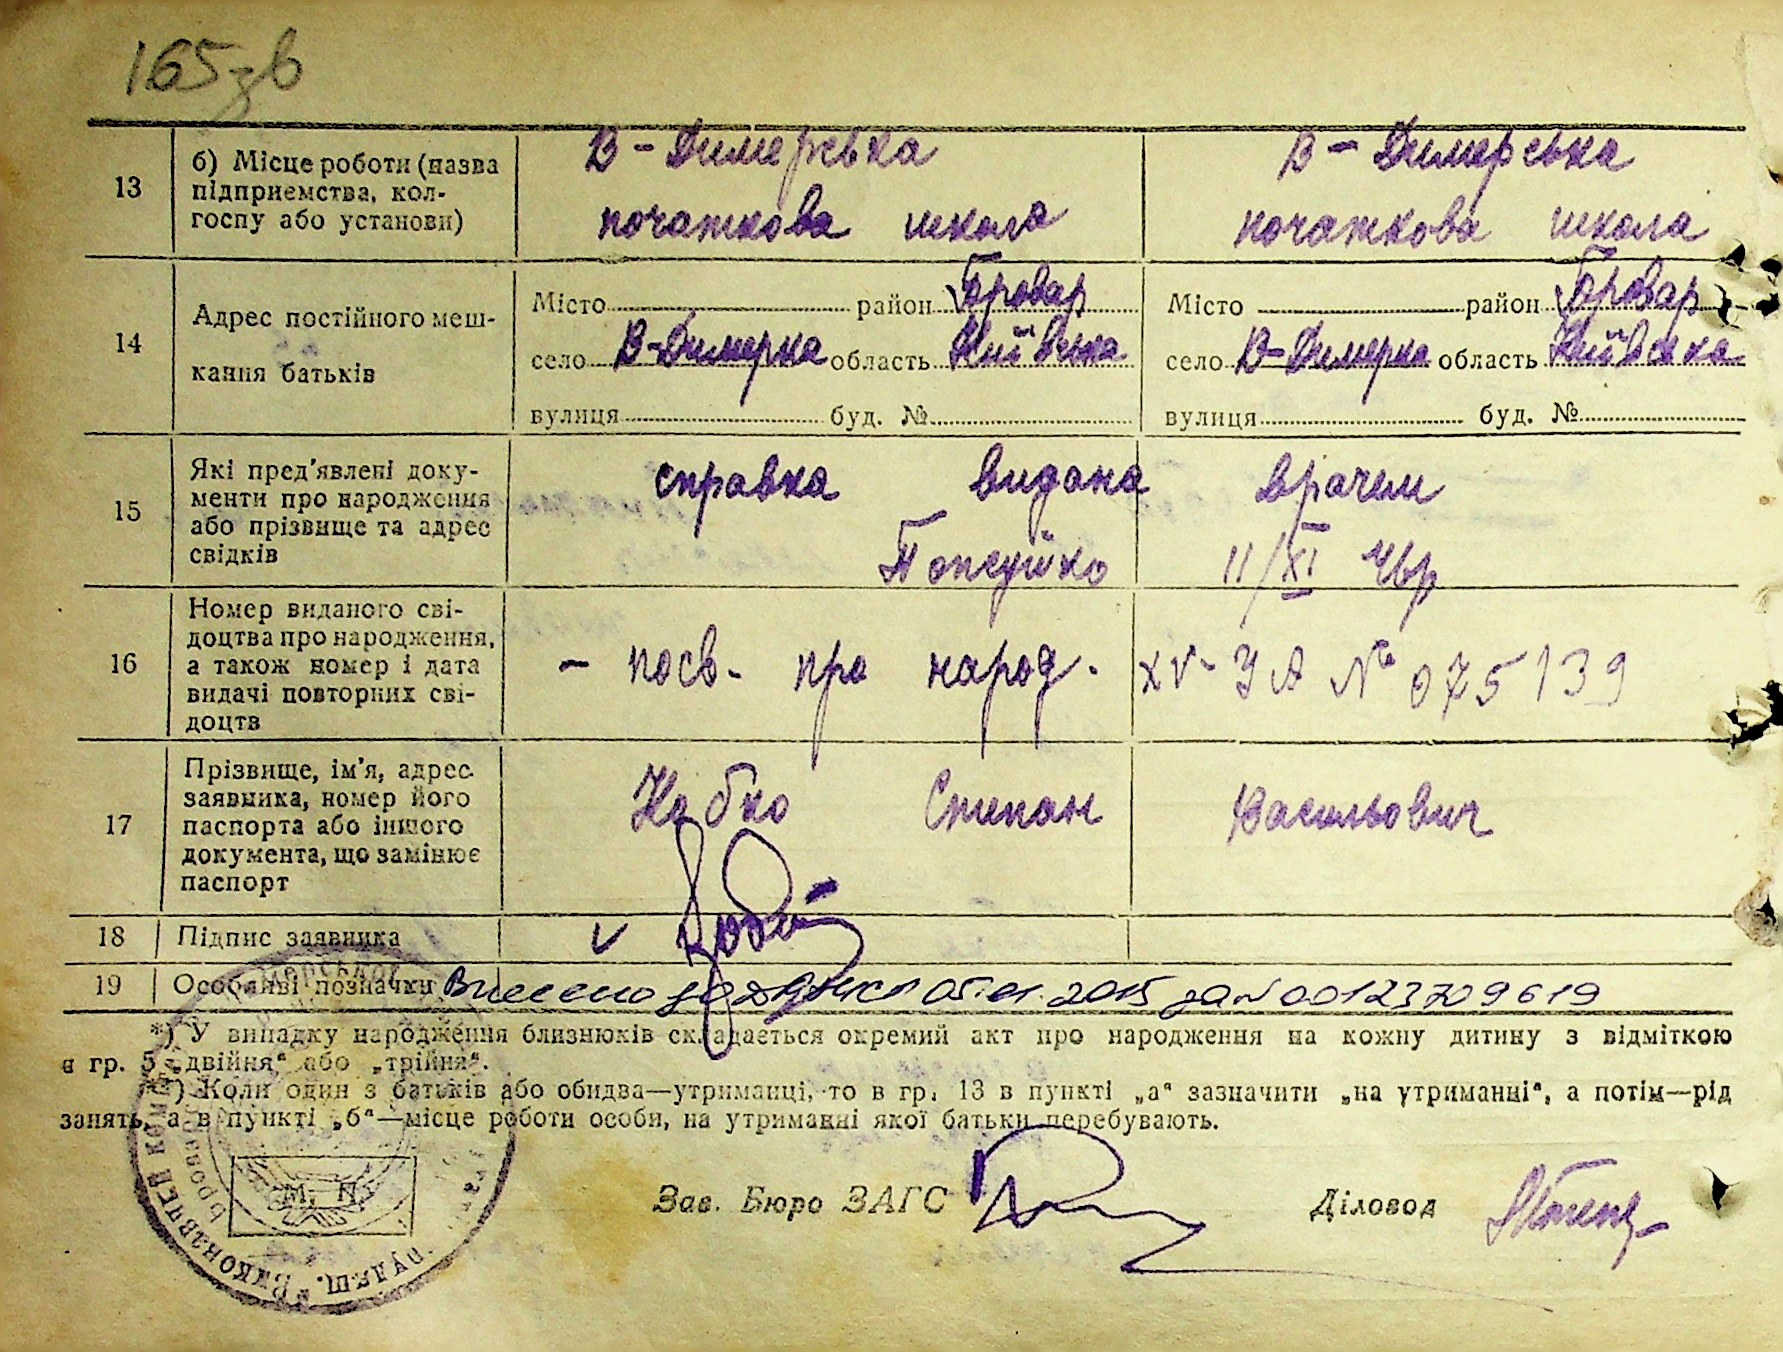 165 зв
13
б) Місце роботи (назва
підприємства, кол-
госпу або установи)
В-Димерська
початкова школа
В-Димерська
початкова школа
14
Адрес постійного меш-
кання батьків
Місто район Бровар
село В-Димерка область Київська
вулиця буд. №
Місто район Бровар
село В-Димерка область Київська
вулиця буд. №
15
Які пред'явлені доку-
менти про народження
або прізвище та адрес
свідків
справка видана врачем
11/XI
16
Номер виданого сві-
доцтва про народження,
а також номер і дата
видачі повторних сві-
доцтв
– посв. про народ. XV-УА № 075139
17
Прізвище, ім'я, адрес
заявника, номер його
паспорта або іншого
документа, що замінює
паспорт
Степан Васильович
18
Підпис заявника
v
19
Особливі позначки Внесено до ДРАЦС 05.01.2015 за № 00123709619
*) У випадку народження близнюків складається окремий акт про народження на кожну дитину з відміткою
в гр. 5 „двійня“ або „трійня“.
**) Коли один з батьків або обидва—утриманці, то в гр. 13 в пункті „а“ зазначити „на утриманні“, а потім—рід
занять, а в пункті „б“—місце роботи особи, на утриманні якої батьки перебувають.
М. П.
Зав. Бюро ЗАГС
Діловод